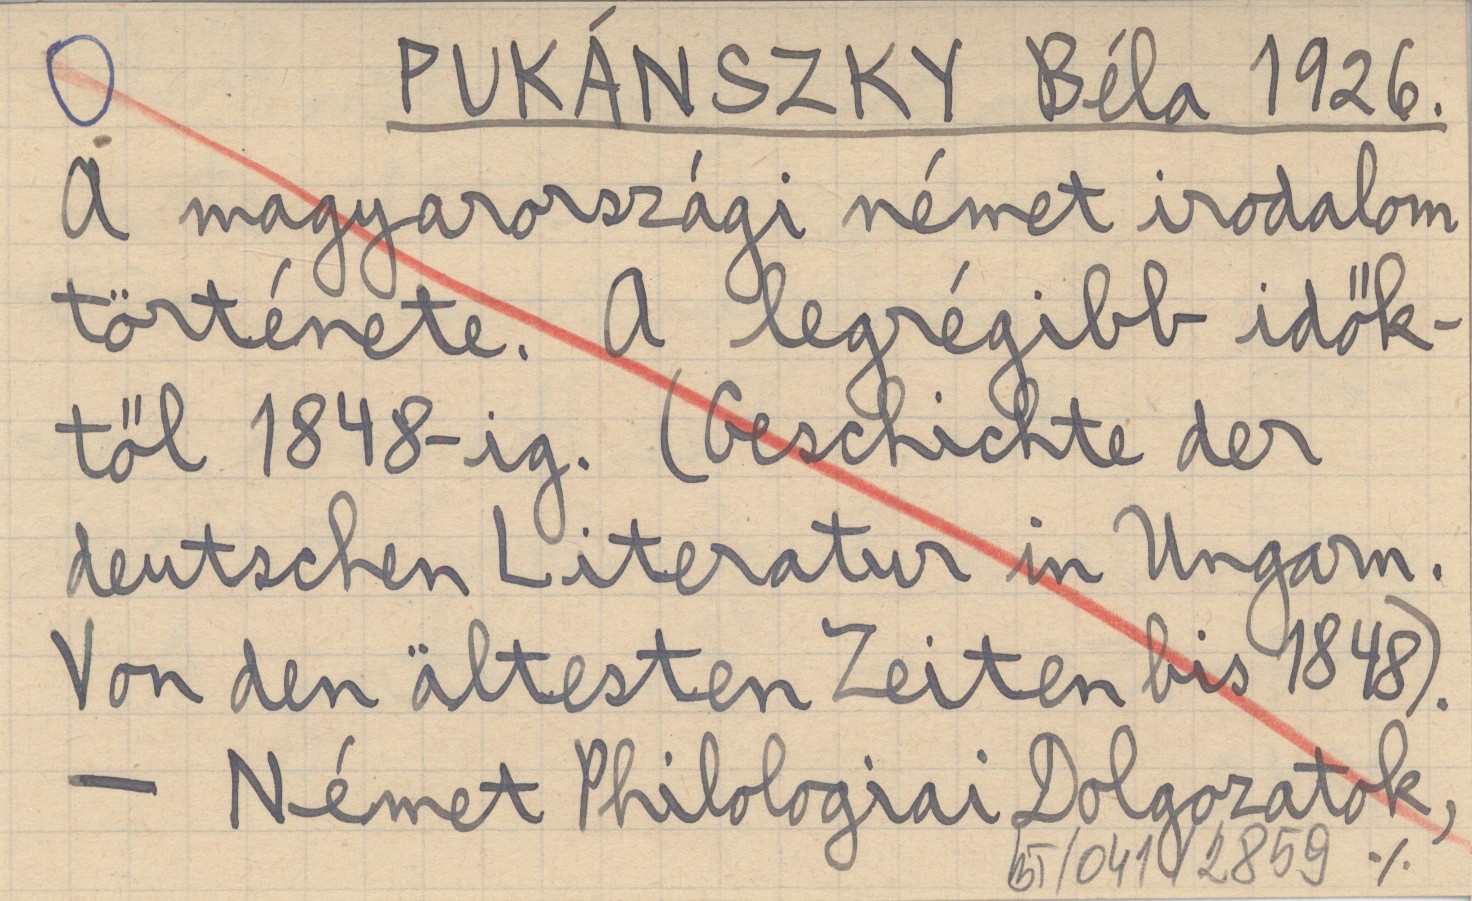 PUKÁNSZKY Béla 1926.
A magyarországi német irodalom
története. A legrégibb idők-
től 1848-ig. (Geschichte der
deutschen Literatur in Ungarn.
Von den ältesten Zeiten bis 1848).
— Német Philologiai Dolgozatok,
/041/2859 ./.